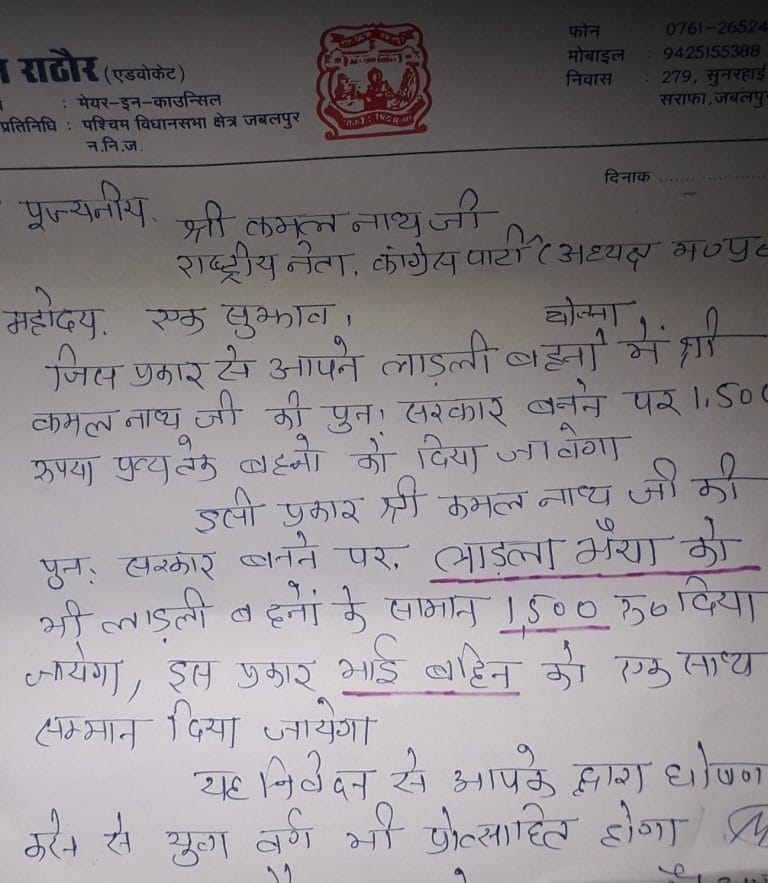 राठौर (एडवोकेट)
: मेयर-इन-काउन्सिल
प्रतिनिधि : पश्चिम विधानसभा क्षेत्र जबलपुर
न.नि.ज.
फोन : 0761-26524
मोबाइल : 9425155388
निवास : 279, सुनरहाई
सराफा, जबलपुर
दिनाक ..................
पूज्यनीय.
श्री कमल नाथ जी
राष्ट्रीय नेता. कांग्रेस पार्टी (अध्यक्ष म०प्र०
महोदय. एक सुझाव,
योजना
जिस प्रकार से आपने लाड़ली बहनों में श्री
कमल नाथ जी की पुन: सरकार बनने पर 1,500
रुपया प्रत्येक बहनो को दिया जावेगा
इसी प्रकार श्री कमल नाथ जी की
पुन: सरकार बनने पर. लाड़ला भैया को
भी लाड़ली बहनों के सामान 1,500 रु० दिया
जायेगा, इस प्रकार भाई बहिन को एक साथ
सम्मान दिया जायेगा
यह निवेदन से आपके द्वारा घोषणा
करने से युवा वर्ग भी प्रोत्साहित होगा